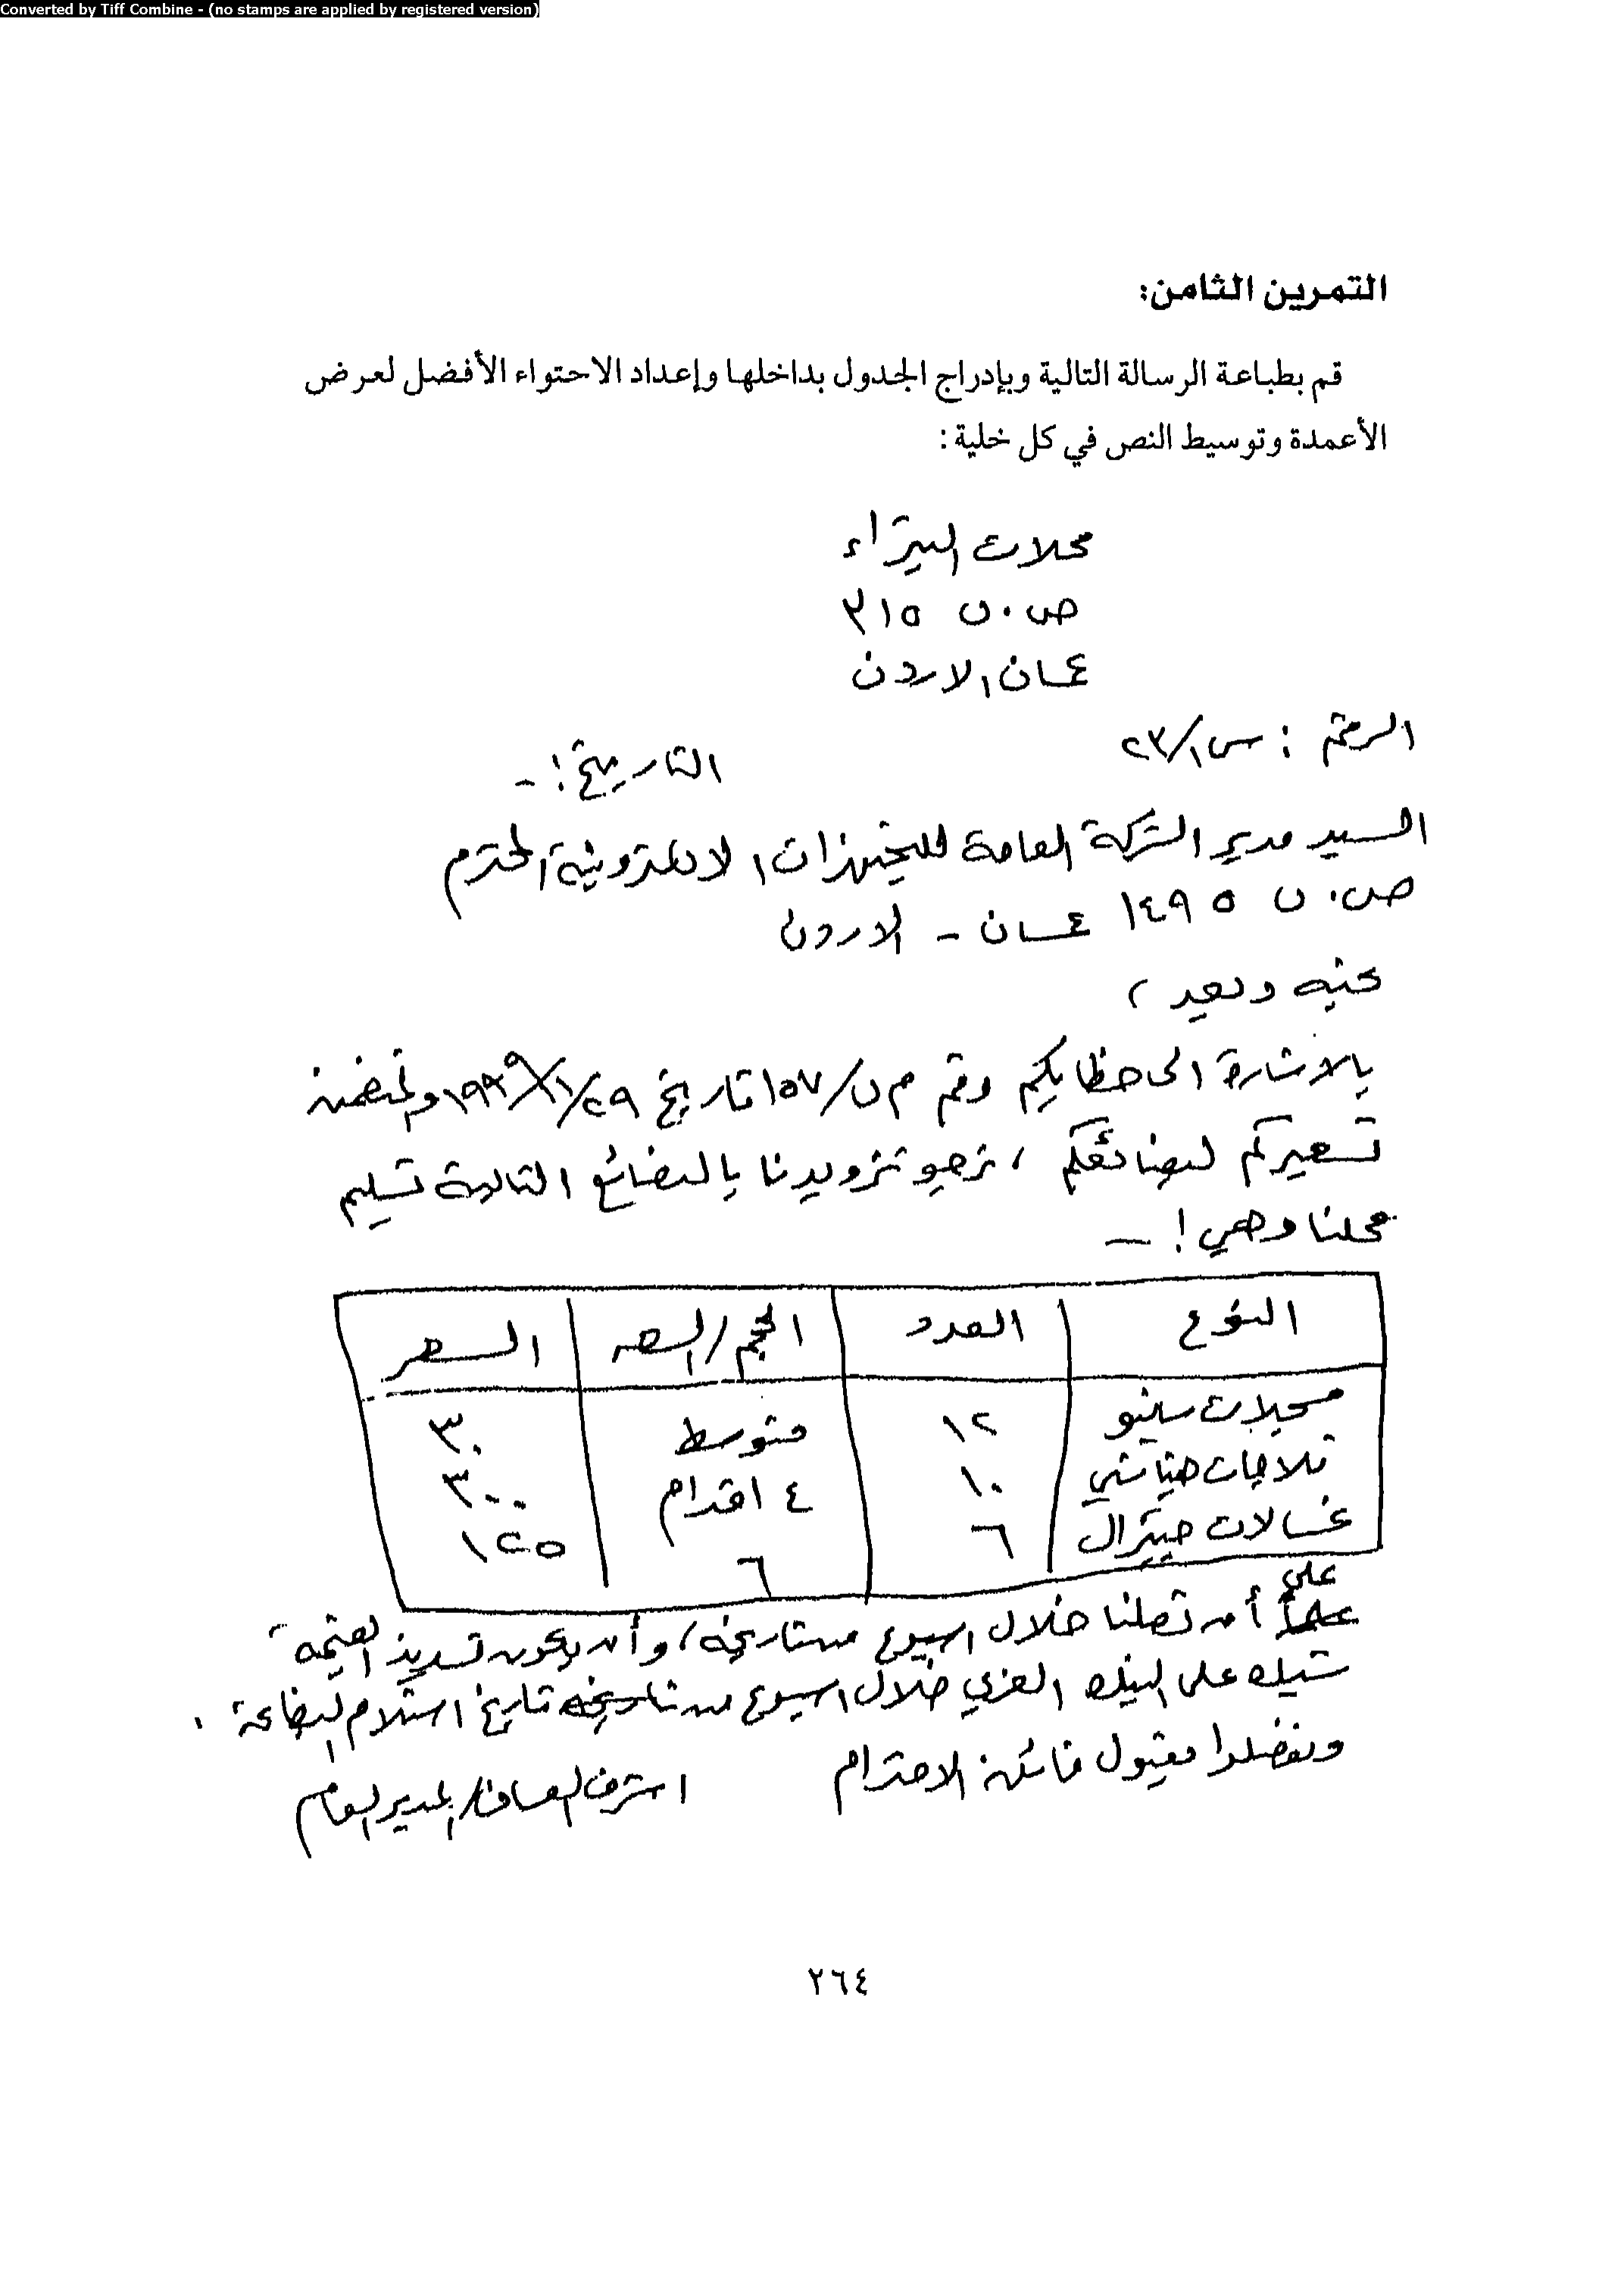 Converted by Tiff Combine - (no stamps are applied by registered version)
التمرين الثامن:
قم بطباعة الرسالة التالية وبإدراج الجدول بداخلها وإعداد الاحتواء الأفضل لعرض
الأعمدة وتوسيط النص في كل خلية:
محلات البتراء
ص.ب ٣١٥
عمان الاردن
الرقم : س/٢٣/١
التاريخ :-
السيد مدير الشركة العامة للتجهيزات الالكترونية المحترم
ص.ب ١٤٩٥ عمان - الاردن
تحية وبعد ،
بالاشارة الى خطابكم رقم م ب/١٥٧ تاريخ ١٩٩٩/١/٢٩ والمتضمن
تسعيركم لبضائعكم ، نرجو تزويدنا بالبضائع التالية تسليم
محلنا وهي :-
النوع العدد الحجم/السعة السعر
مسجلات سانيو ١٢ متوسط ٣٠
ثلاجات هيتاشي ١٠ ٤ اقدام ٣٠٠
غسالات جنرال ٦ ٦ ١٢٥
على أن تصلنا خلال اسبوع من تاريخه ، وأن يكون تسديد القيمة
بشيك على البنك العربي خلال اسبوع من تاريخ استلام البضاعة .
وتفضلوا بقبول فائق الاحترام
اشرف العساف/المدير العام
٢٦٤